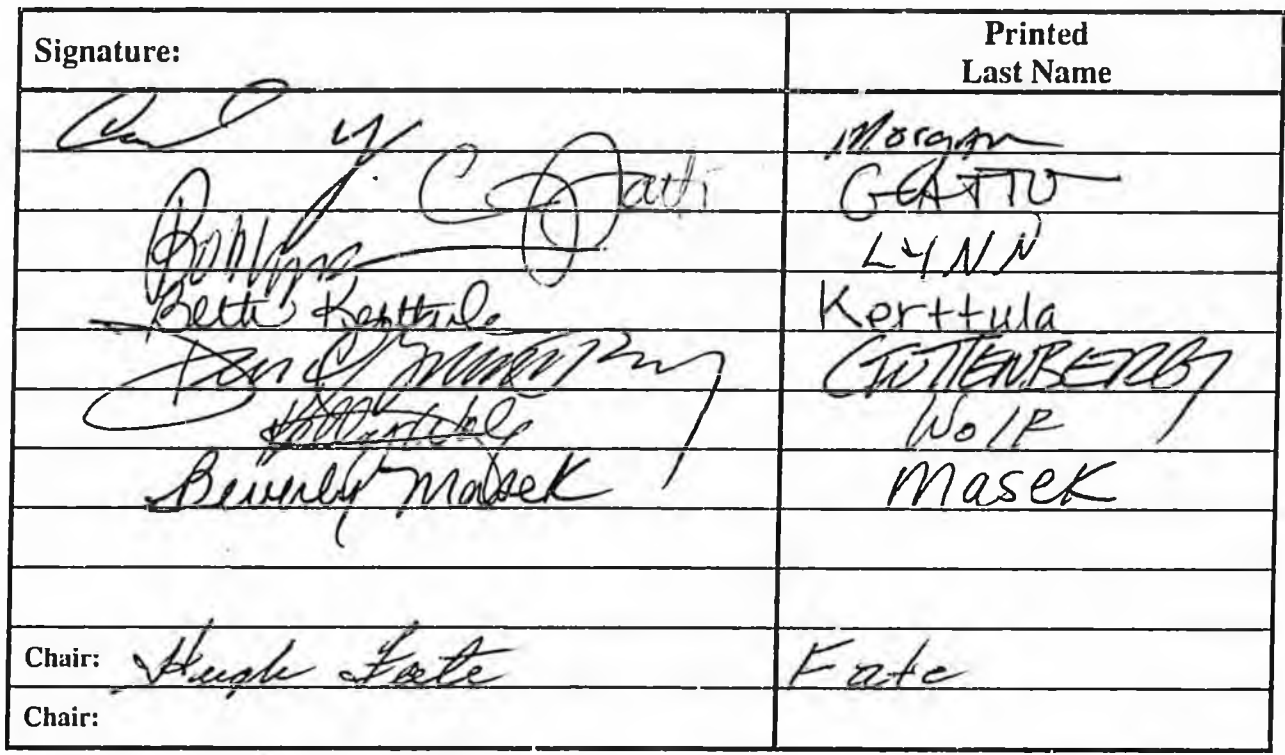 Signature: Printed Last Name
Morgan
C Gatti GATTO
Bob Lynn LYNN
Beth Kerttula Kerttula
GUTTENBERG
Wolf
Beverly Masek Masek
Chair: Hugh Fate Fate
Chair: